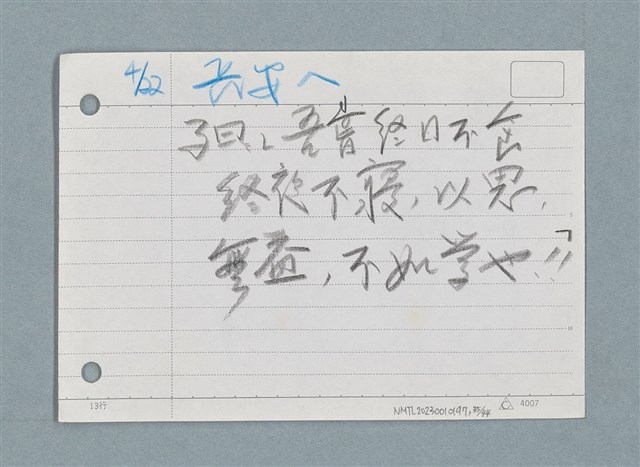 4/22 長安へ
子曰、吾嘗終日不食
終夜不寝、以思、
無益，不如学也!!」
13行
NMTL20230010197, 35/44
C 4007